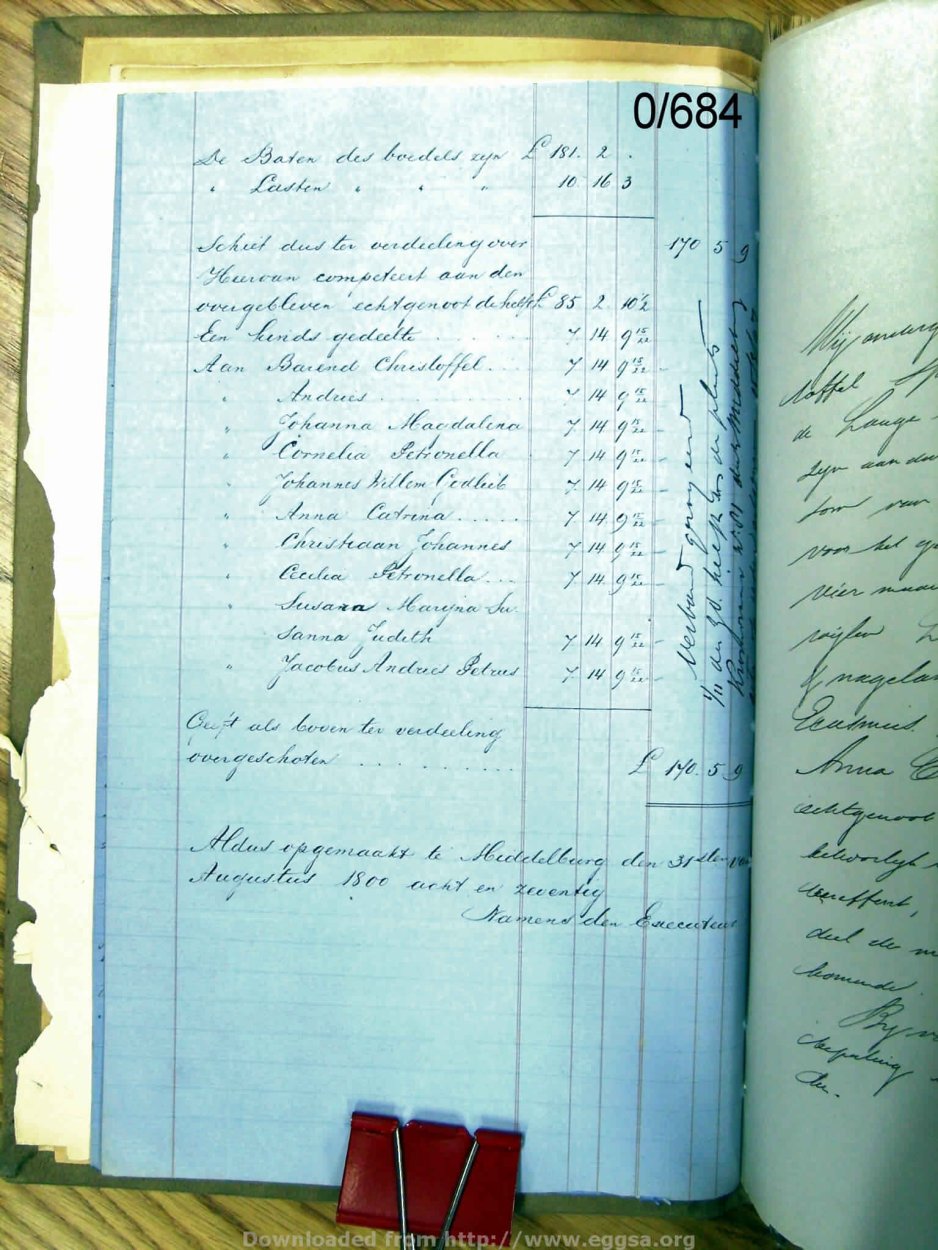 0/684
De Baten des boedels zyn £ 181. 2 .
" Lasten " " " 10. 16 3
Schiet dus ter verdeeling over 170 5 9
Hiervan competeert aan den
overgebleven echtgenoot de helft £ 85 2. 10½
Een kinds gedeelte . . . . . . 7 14 9 15/22
Aan Barend Christoffel . . . 7 14 9 15/22
" Andries . . . . . . . . . 7 14 9 15/22
" Johanna Magdalena 7 14 9 15/22
" Cornelia Petronella 7 14 9 15/22
" Johannes Willem Godlieb 7. 14 9 15/22
" Anna Catrina . . . . . 7 14 9 15/22
" Christiaan Johannes 7 14 9 15/22
" Cecilia Petronella . . . 7 14. 9 15/22
" Susanna Maryna Su-
sanna Judith 7 14 9 15/22
" Jacobus Andries Petrus 7. 14 9 15/22
Geeft als boven ter verdeeling
overgeschoten . . . . . . . . . £ 170. 5 9
Aldus opgemaakt te Middelburg den 31sten van
Augustus 1800 acht en zeventig
Namens den Executeur
Verband
1/11 der
heeft
plaats
Wy
toffel
de Lange
zyn aan
voor het
vier
Erasmus
Anna
echtgenoot
behoorlyk
deel de
komende
By
bepaling
Downloaded from http://www.eggsa.org